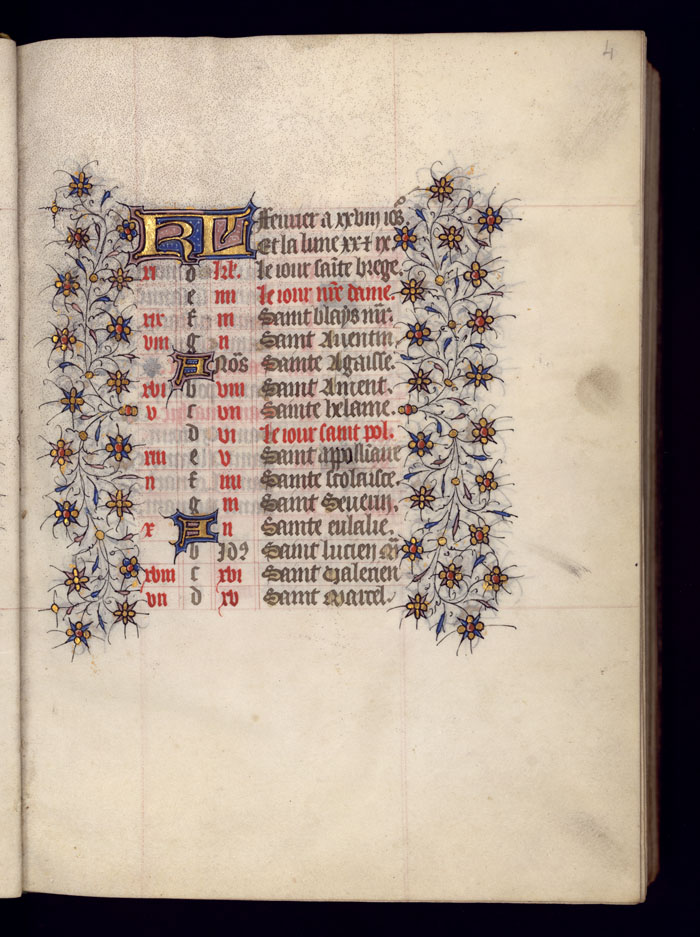 4
KL feurier a xxviii iors
Et la lune xx & ix.
xi d kl. le iour sainte brege.
e iiii le iour nre dame.
xix f iii Saint blays mr.
viii g ii Saint Auentin.
A nos Sainte Agaisse.
xvi b viii Saint Ament.
v c vii Sainte helaine.
d vi le iour saint pol.
xiii e v Saint appolinaire
ii f iiii Sainte scolaisce.
g iii Saint Seuerin.
x A ii Sainte eulalie.
b Ids Saint lucien
xviii c xvi Saint valenten
vii d xv Saint Marcel.